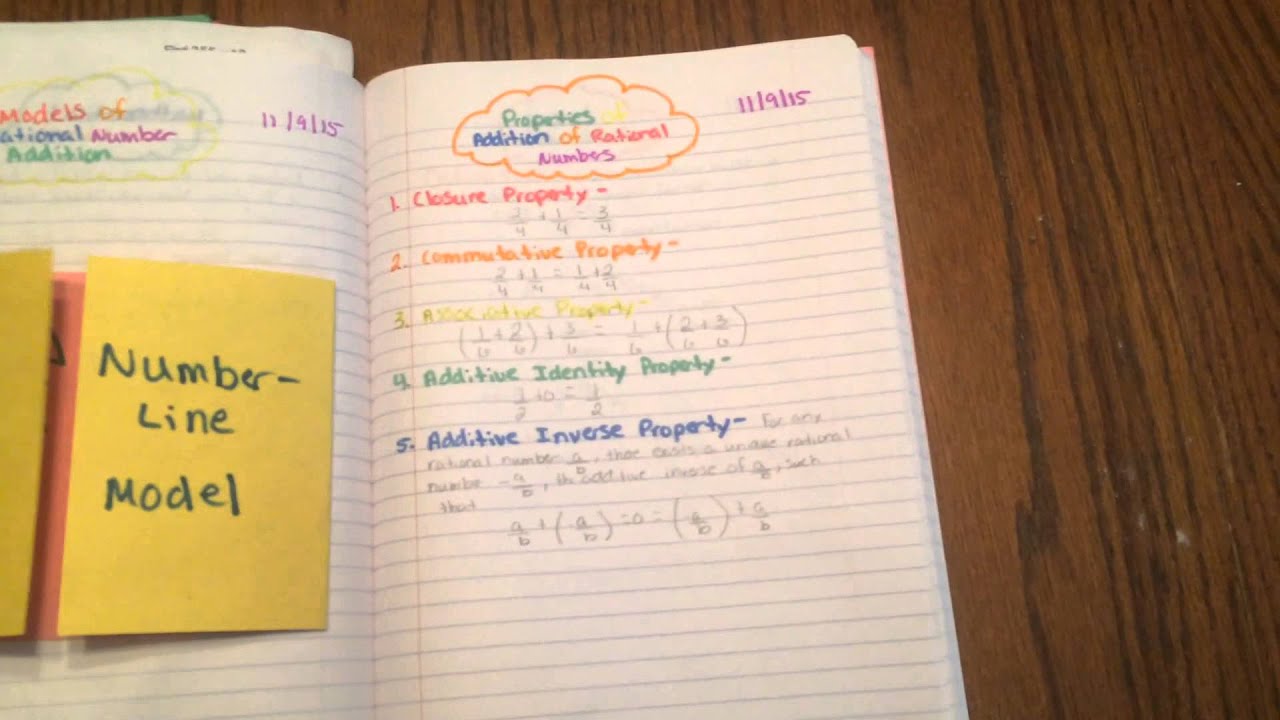 Models of
ational Number
Addition
11/9/15
Number-
Line
Model
Properties of
Addition of Rational
Numbers
11/9/15
1. Closure Property -
2/4 + 1/4 = 3/4
2. Commutative Property -
2/4 + 1/4 = 1/4 + 2/4
3. Associative Property -
(1/6 + 2/6) + 3/6 = 1/6 + (2/6 + 3/6)
4. Additive Identity Property -
1/2 + 0 = 1/2
5. Additive Inverse Property - For any
rational number a/b, there exists a unique rational
number -a/b, the additive inverse of a/b, such
that
a/b + (a/b) = 0 = (a/b) + a/b